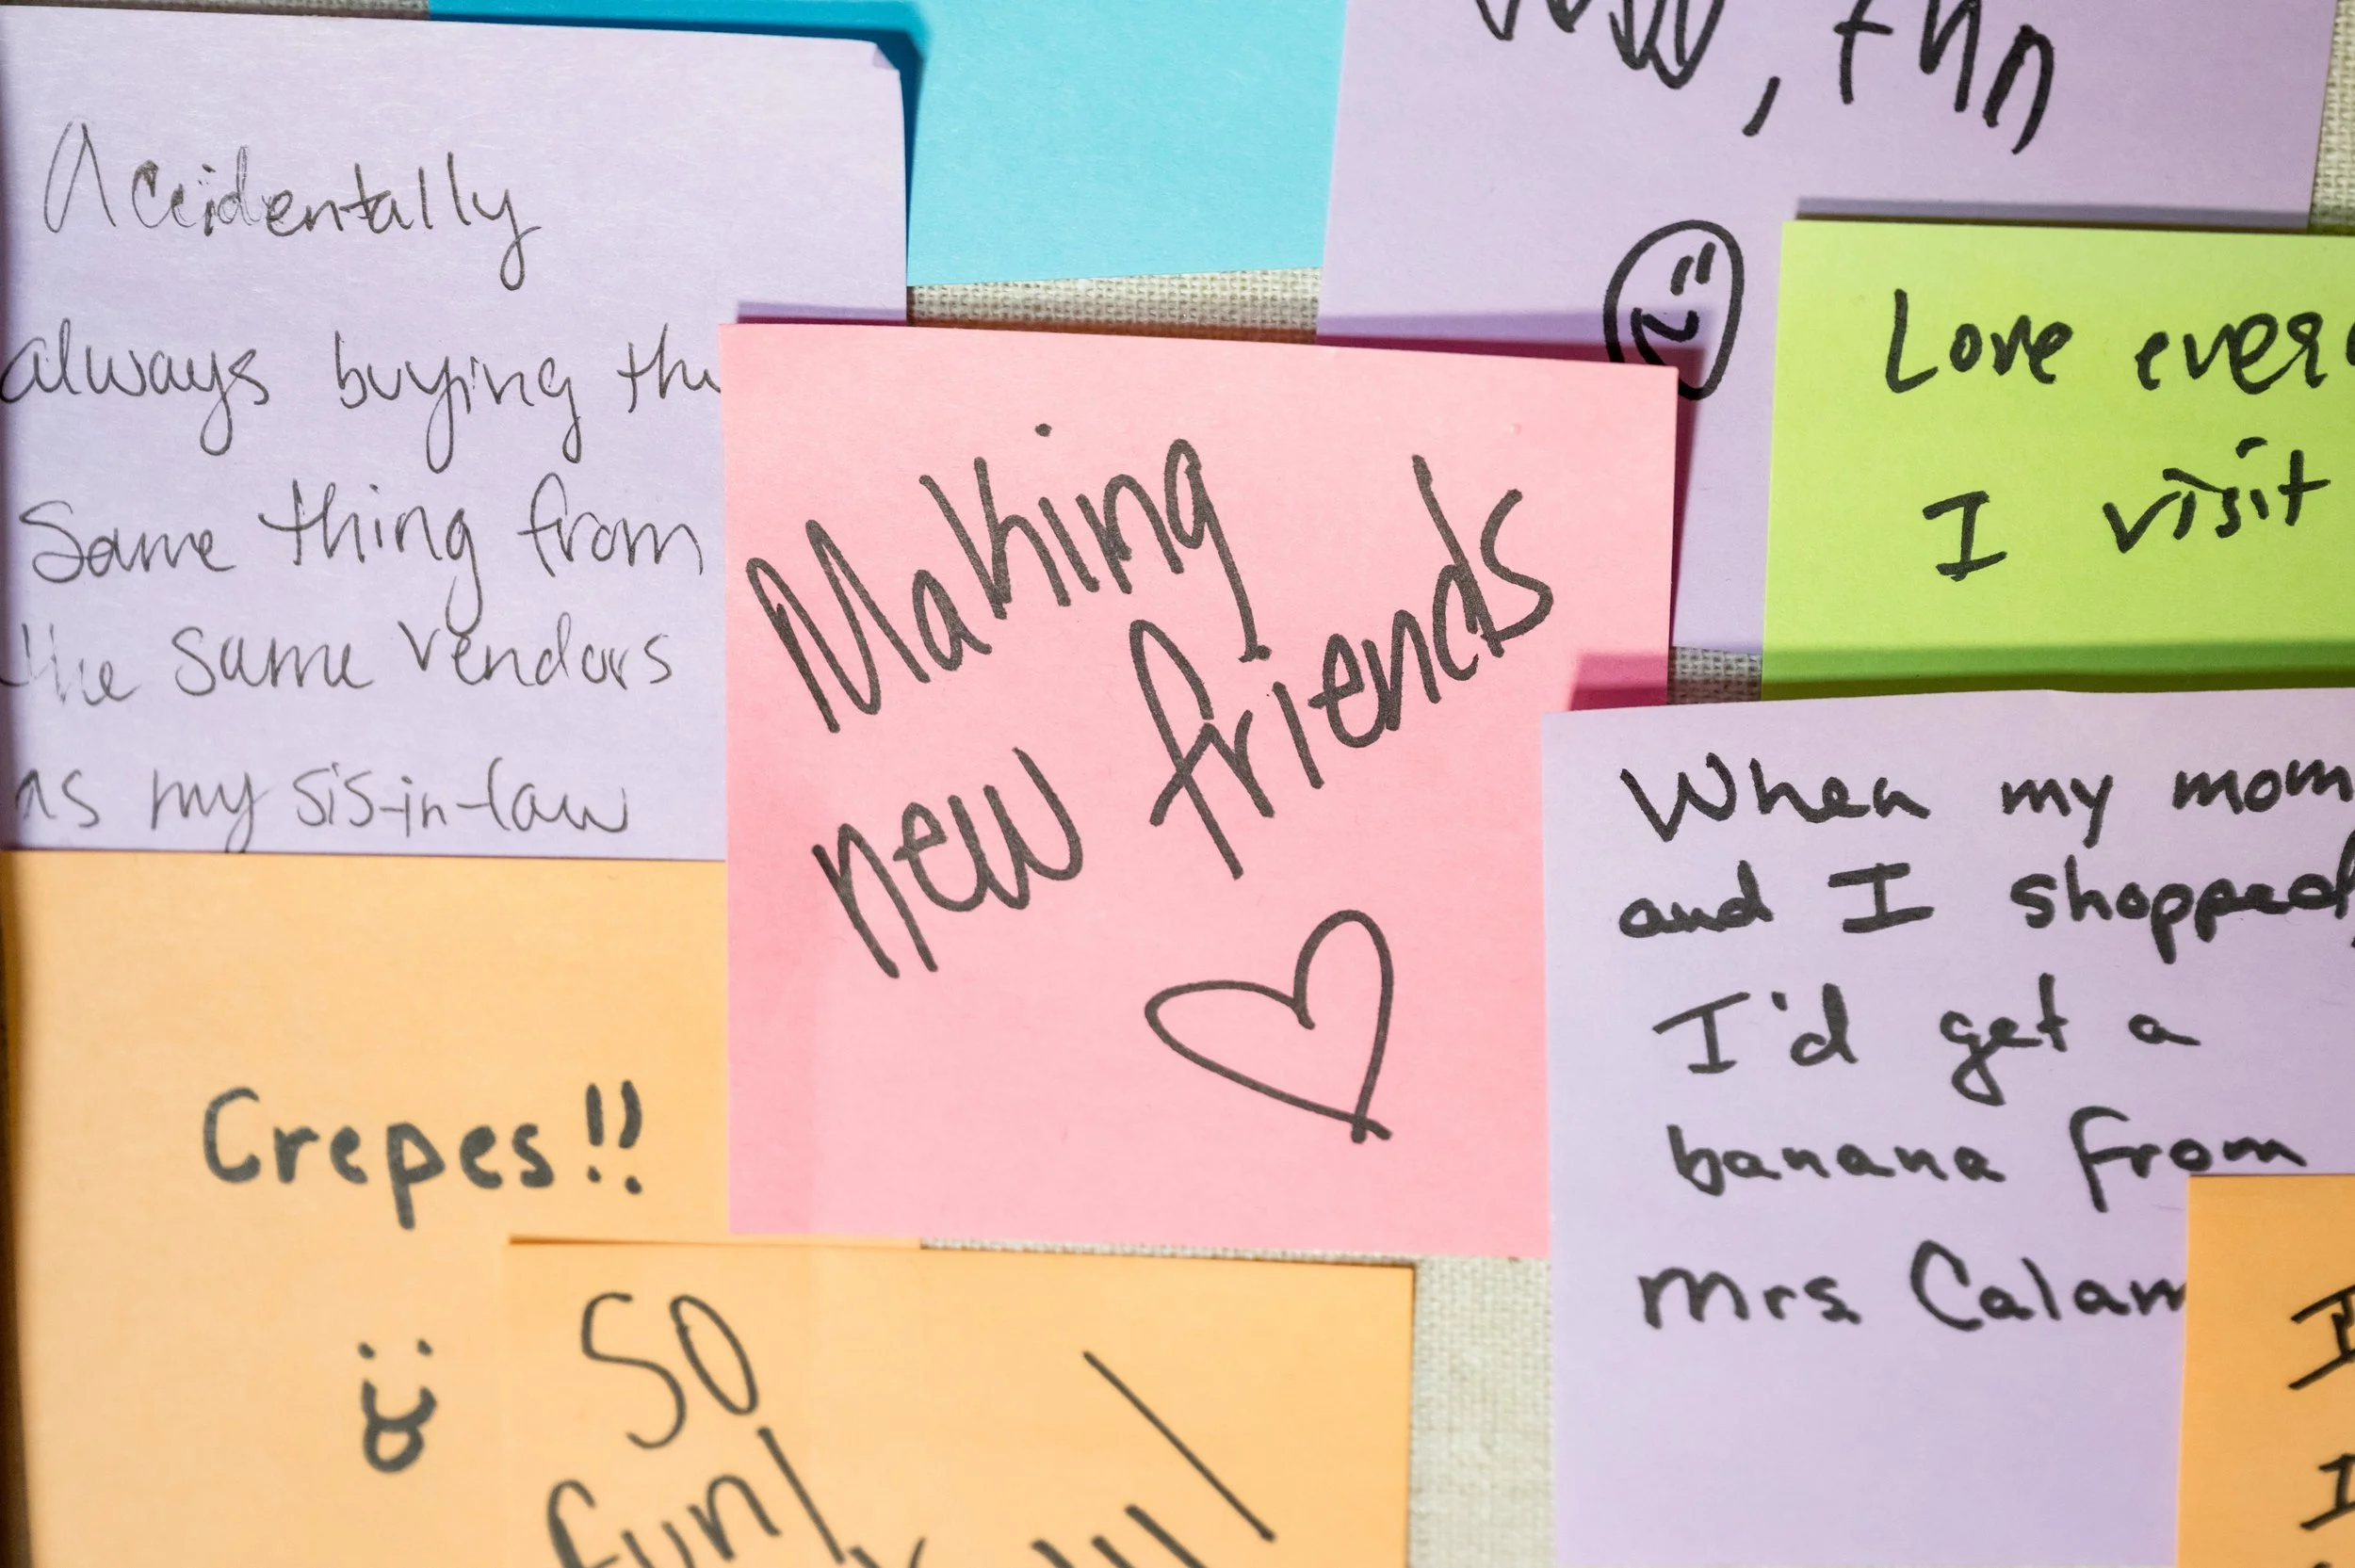 Accidentally
always buying the
Same thing from
the same vendors
as my sis-in-law
, fun
Love ever
I visit
Making
new friends
When my mom
and I shopped,
I'd get a
banana from
Mrs Calam
Crepes!!
SO
fun!
I
I